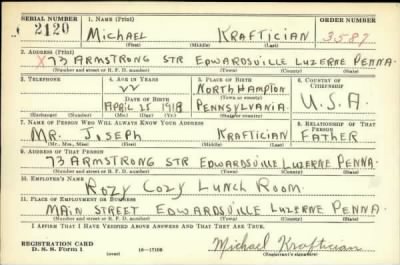 SERIAL NUMBER 1. NAME (Print) ORDER NUMBER
2120 MICHAEL KRAFTICIAN 3587
(First) (Middle) (Last)
2. ADDRESS (Print)
X73 ARMSTRONG STR EDWARDSVILLE LUZERNE PENNA.
(Number and street or R. F. D. number) (Town) (County) (State)
3. TELEPHONE 4. AGE IN YEARS 5. PLACE OF BIRTH 6. COUNTRY OF CITIZENSHIP
22 NORTH HAMPTON
DATE OF BIRTH (Town or county)
APRIL 15 1918 PENNSYLVANIA. U.S.A.
(Exchange) (Number) (Mo.) (Day) (Yr.) (State or country)
7. NAME OF PERSON WHO WILL ALWAYS KNOW YOUR ADDRESS 8. RELATIONSHIP OF THAT PERSON
MR. JOSEPH KRAFTICIAN FATHER
(Mr., Mrs., Miss) (First) (Middle) (Last)
9. ADDRESS OF THAT PERSON
73 ARMSTRONG STR EDWARDSVILLE LUZERNE PENNA.
(Number and street or R. F. D. number) (Town) (County) (State)
10. EMPLOYER'S NAME
ROZY COZY LUNCH ROOM.
11. PLACE OF EMPLOYMENT OR BUSINESS
MAIN STREET EDWARDSVILLE LUZERNE PENNA.
(Number and street or R. F. D. number) (Town) (County) (State)
I AFFIRM THAT I HAVE VERIFIED ABOVE ANSWERS AND THAT THEY ARE TRUE.
REGISTRATION CARD
D. S. S. Form 1 16—17105 Michael Kraftician
(Registrant's signature)